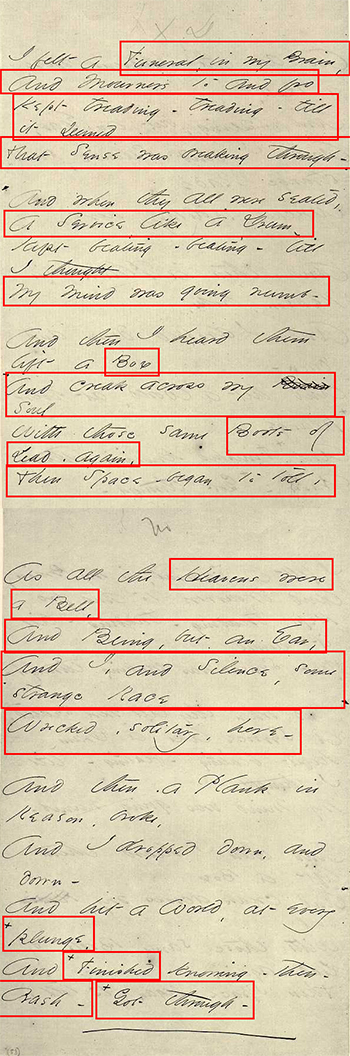 I felt a Funeral, in my Brain,
And Mourners to and fro
Kept treading - treading - till
it seemed
That Sense was breaking through -
And when they all were seated,
A Service, like a Drum -
Kept beating - beating - till
I thought
My mind was going numb -
And then I heard them
lift a Box
And creak across my Brain
Soul
With those same Boots of
Lead, again,
Then Space - began to toll,
As all the Heavens were
a Bell,
And Being, but an Ear,
And I, and Silence, some
strange Race
Wrecked, solitary, here -
And then a Plank in
Reason, broke,
And I dropped down, and
down -
And hit a World, at every
+ plunge,
And + Finished knowing - then -
Crash - + Got through -